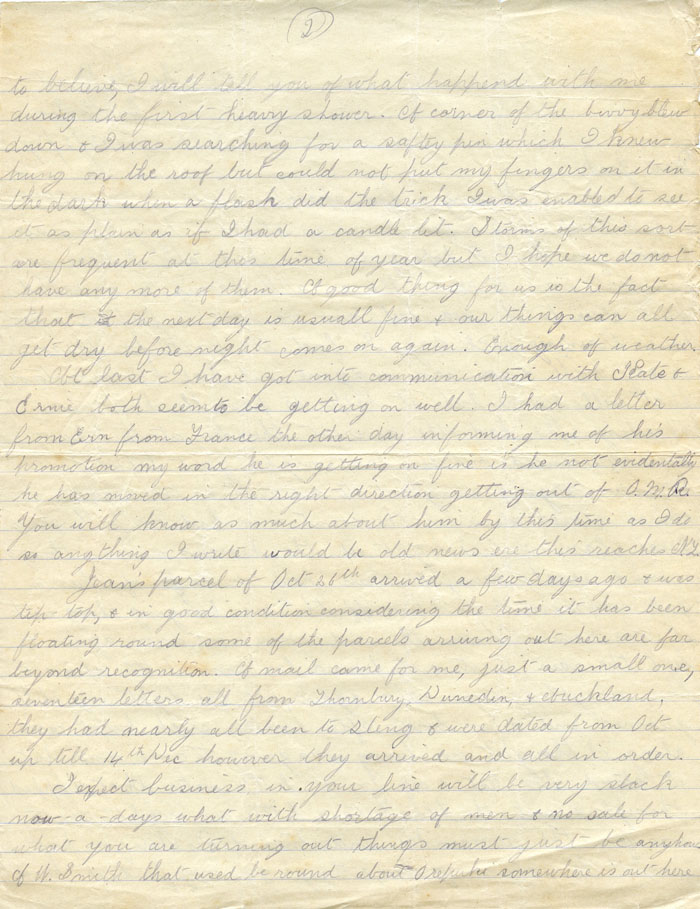 2
to believe, I will tell you of what happend with me
during the first heavy shower. A corner of the bivvy blew
down & I was searching for a safty pin which I knew
hung on the roof but could not put my fingers on it in
the dark when a flash did the trick I was enabled to see
it as plain as if I had a candle lit. Storms of this sort
are frequent at this time of year but I hope we do not
have any more of them. A good thing for us is the fact
that the next day is usuall fine & our things can all
get dry before night comes on again. Enough of weather.
At last I have got into communication with Kate &
Ernie both seem to be getting on well. I had a letter
from Ern from France the other day informing me of his
promotion my word he is getting on fine is he not evidentally
he has moved in the right direction getting out of
You will know as much about him by this time as I do
so anything I write would be old news ere this reaches NZ
Jean's parcel of Oct 26th arrived a few days ago & was
tip top, & in good condition considering the time it has been
floating round some of the parcels arriving out here are far
beyond recognition. A mail came for me, just a small one,
seventeen letters all from Thornbury, Dunedin, & Auckland,
they had nearly all been to & were dated from Oct
up till 14th Dec however they arrived and all in order.
I expect business in your line will be very slack
now-a-days what with shortage of men & no sale for
what you are turning out things must just be anyhow
A W. Smith that used be round about Orepuki somewhere is out here